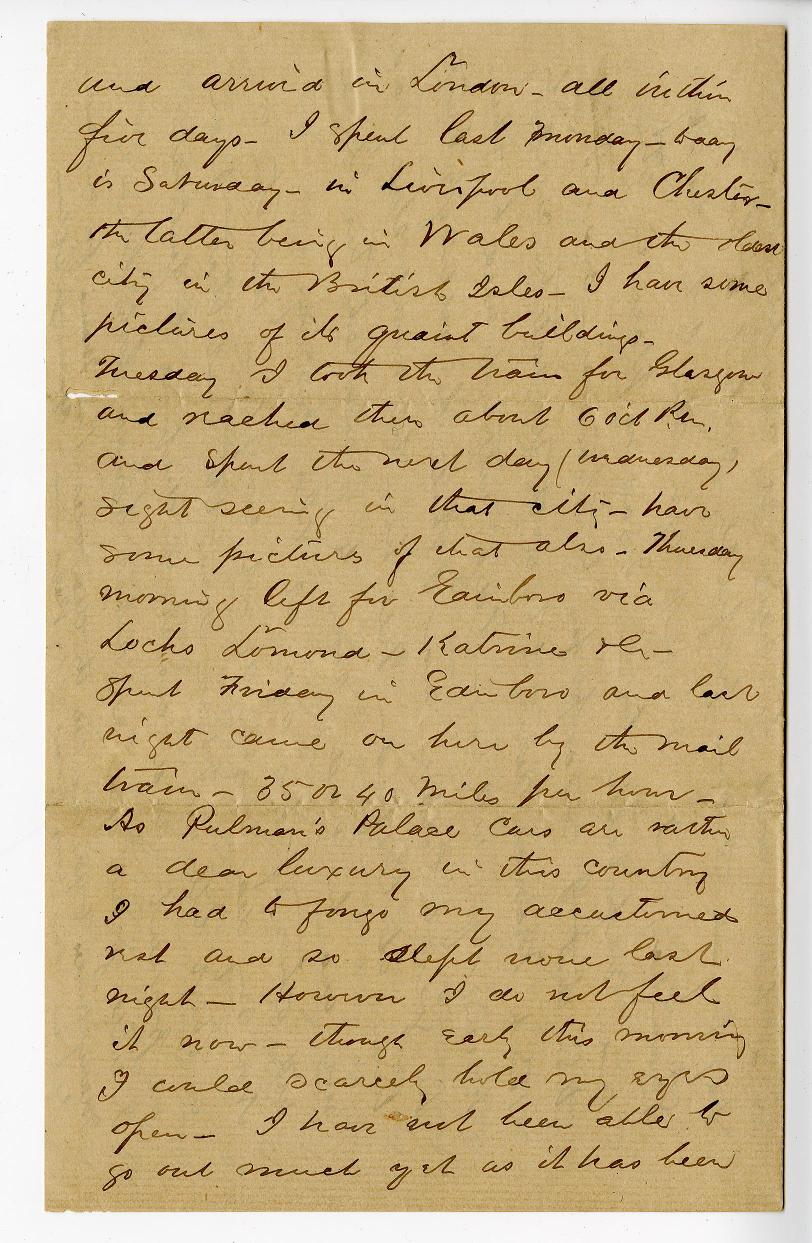 and arrived in London - all within
five days - I spent last Monday - today
is Saturday - in Liverpool and Chester -
the latter being in Wales and the oldest
city in the British Isles - I have some
pictures of its quaint buildings -
Tuesday I took the train for Glasgow
and reached there about 6 ock P.m.
and spent the next day (Wednesday)
sight seeing in that city - have
some pictures of that also - Thursday
morning left for Edinboro via
Lochs Lomond - Katrine &c -
spent Friday in Edinboro and last
night came on here by the mail
train - 35 or 40 miles per hour -
As Pulman's Palace Cars are rather
a dear luxury in this country
I had to forego my accustomed
rest and so slept none last
night - However I do not feel
it now - though early this morning
I could scarcely hold my eyes
open - I have not been able to
go out much yet as it has been